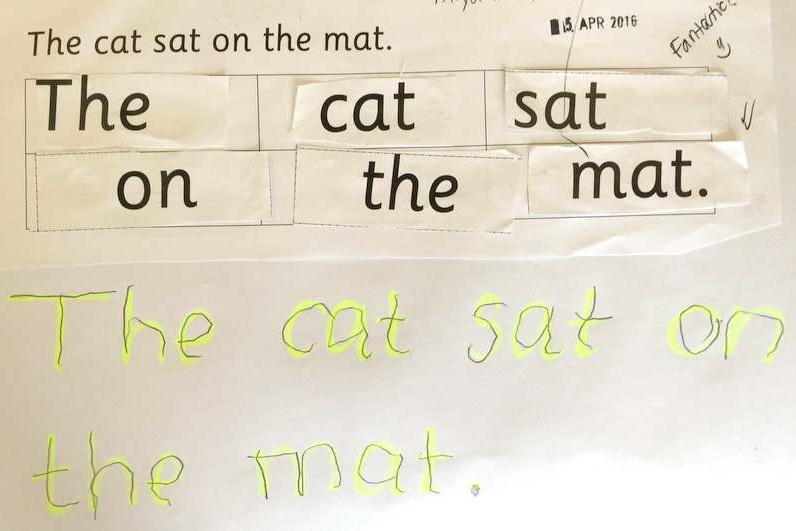 15 APR 2016
Fantastic
The cat sat on the mat.
The cat sat
on the mat.
The cat sat on
the mat.